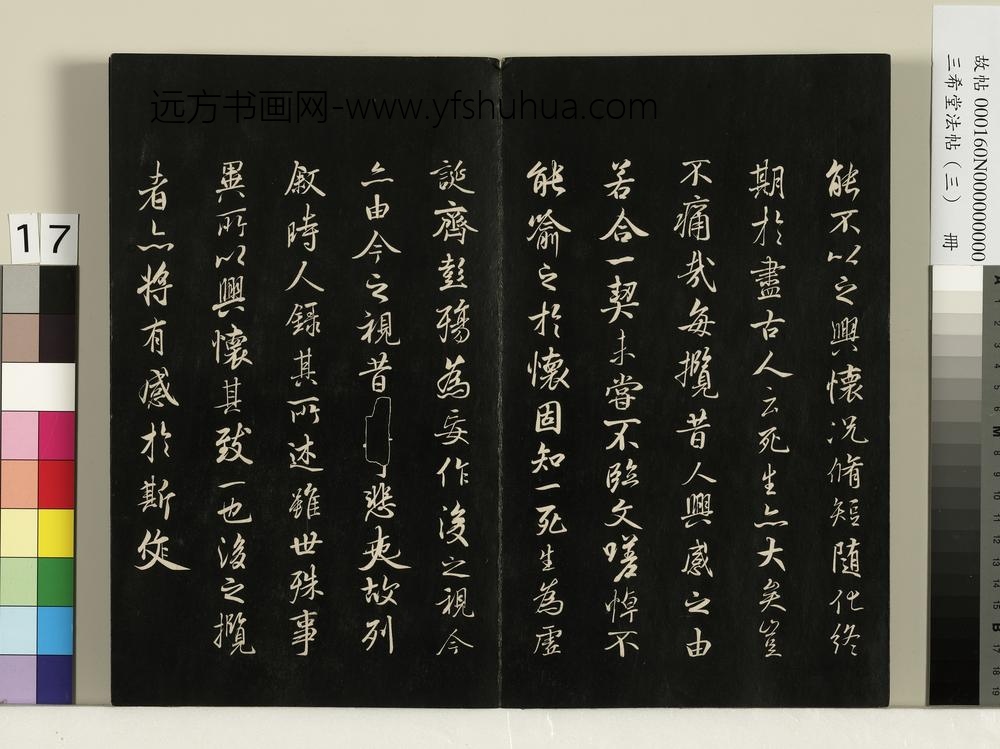 远方书画网-www.yfshuhua.com
能不以之興懷況脩短隨化終
期於盡古人云死生亦大矣豈
不痛哉每攬昔人興感之由
若合一契未嘗不臨文嗟悼不
能喻之於懷固知一死生為虛
誕齊彭殤為妄作後之視今
亦由今之視昔悲夫故列
敘時人錄其所述雖世殊事
異所以興懷其致一也後之攬
者亦將有感於斯作
故帖 000160N000000000
三希堂法帖（三） 冊
17